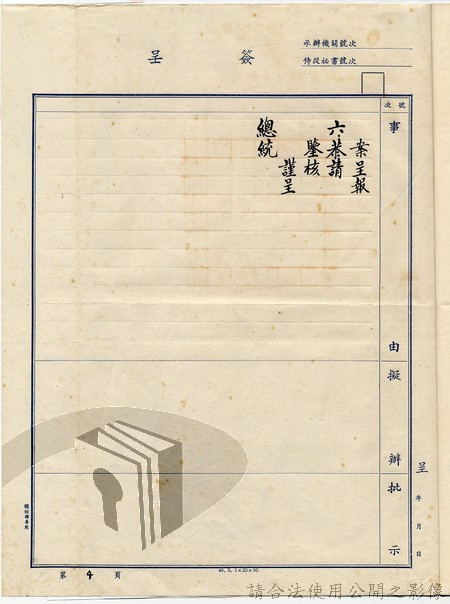 簽呈
承辦機關號次
侍從祕書號次
號次
事由
擬辦
批示
案呈報
六、恭請
鑒核
謹呈
總統
呈 年 月 日
第 4 頁
45. 5. 1×20×50
請合法使用公開之影像